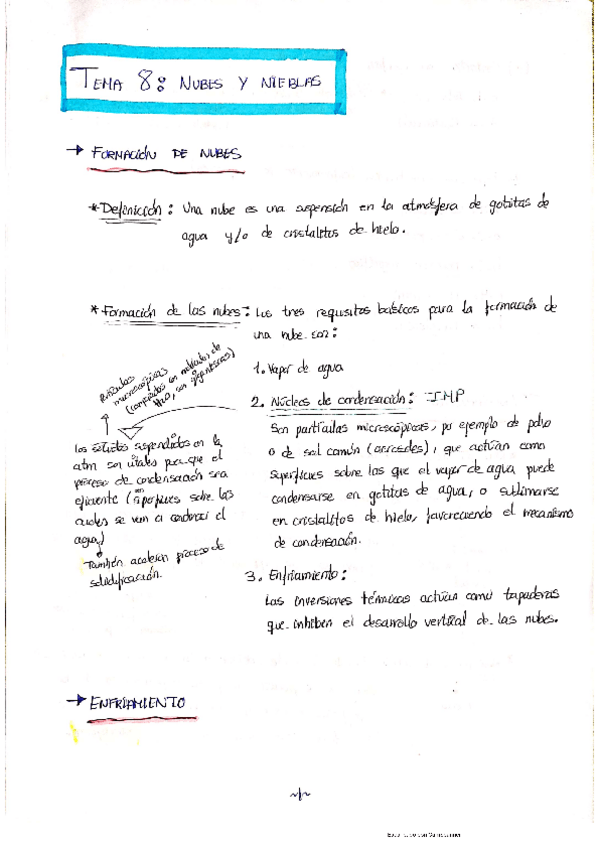 TEMA 8: NUBES Y NIEBLAS
→ FORMACIÓN DE NUBES
* Definición: Una nube es una suspensión en la atmósfera de gotitas de
agua y/o de cristalitos de hielo.
* Formación de las nubes: Los tres requisitos básicos para la formación de
una nube son:
1. Vapor de agua
2. Núcleos de condensación: IMP
Son partículas microscópicas, por ejemplo de polvo
o de sal común (aerosoles), que actúan como
superficies sobre las que el vapor de agua, puede
condensarse en gotitas de agua, o sublimarse
en cristalitos de hielo, favoreciendo el mecanismo
de condensación.
partículas
microscópicas
(comparadas con moléculas de
H2O, son gigantescas)
Los sólidos suspendidos en la
atm son vitales para que el
proceso de condensación sea
eficiente (son superficies sobre las
cuales se van a condensar el
agua)
También aceleran proceso de
solidificación.
3. Enfriamiento:
Las inversiones térmicas actúan como tapaderas
que inhiben el desarrollo vertical de las nubes.
→ ENFRIAMIENTO
-1-
Escaneado con CamScanner